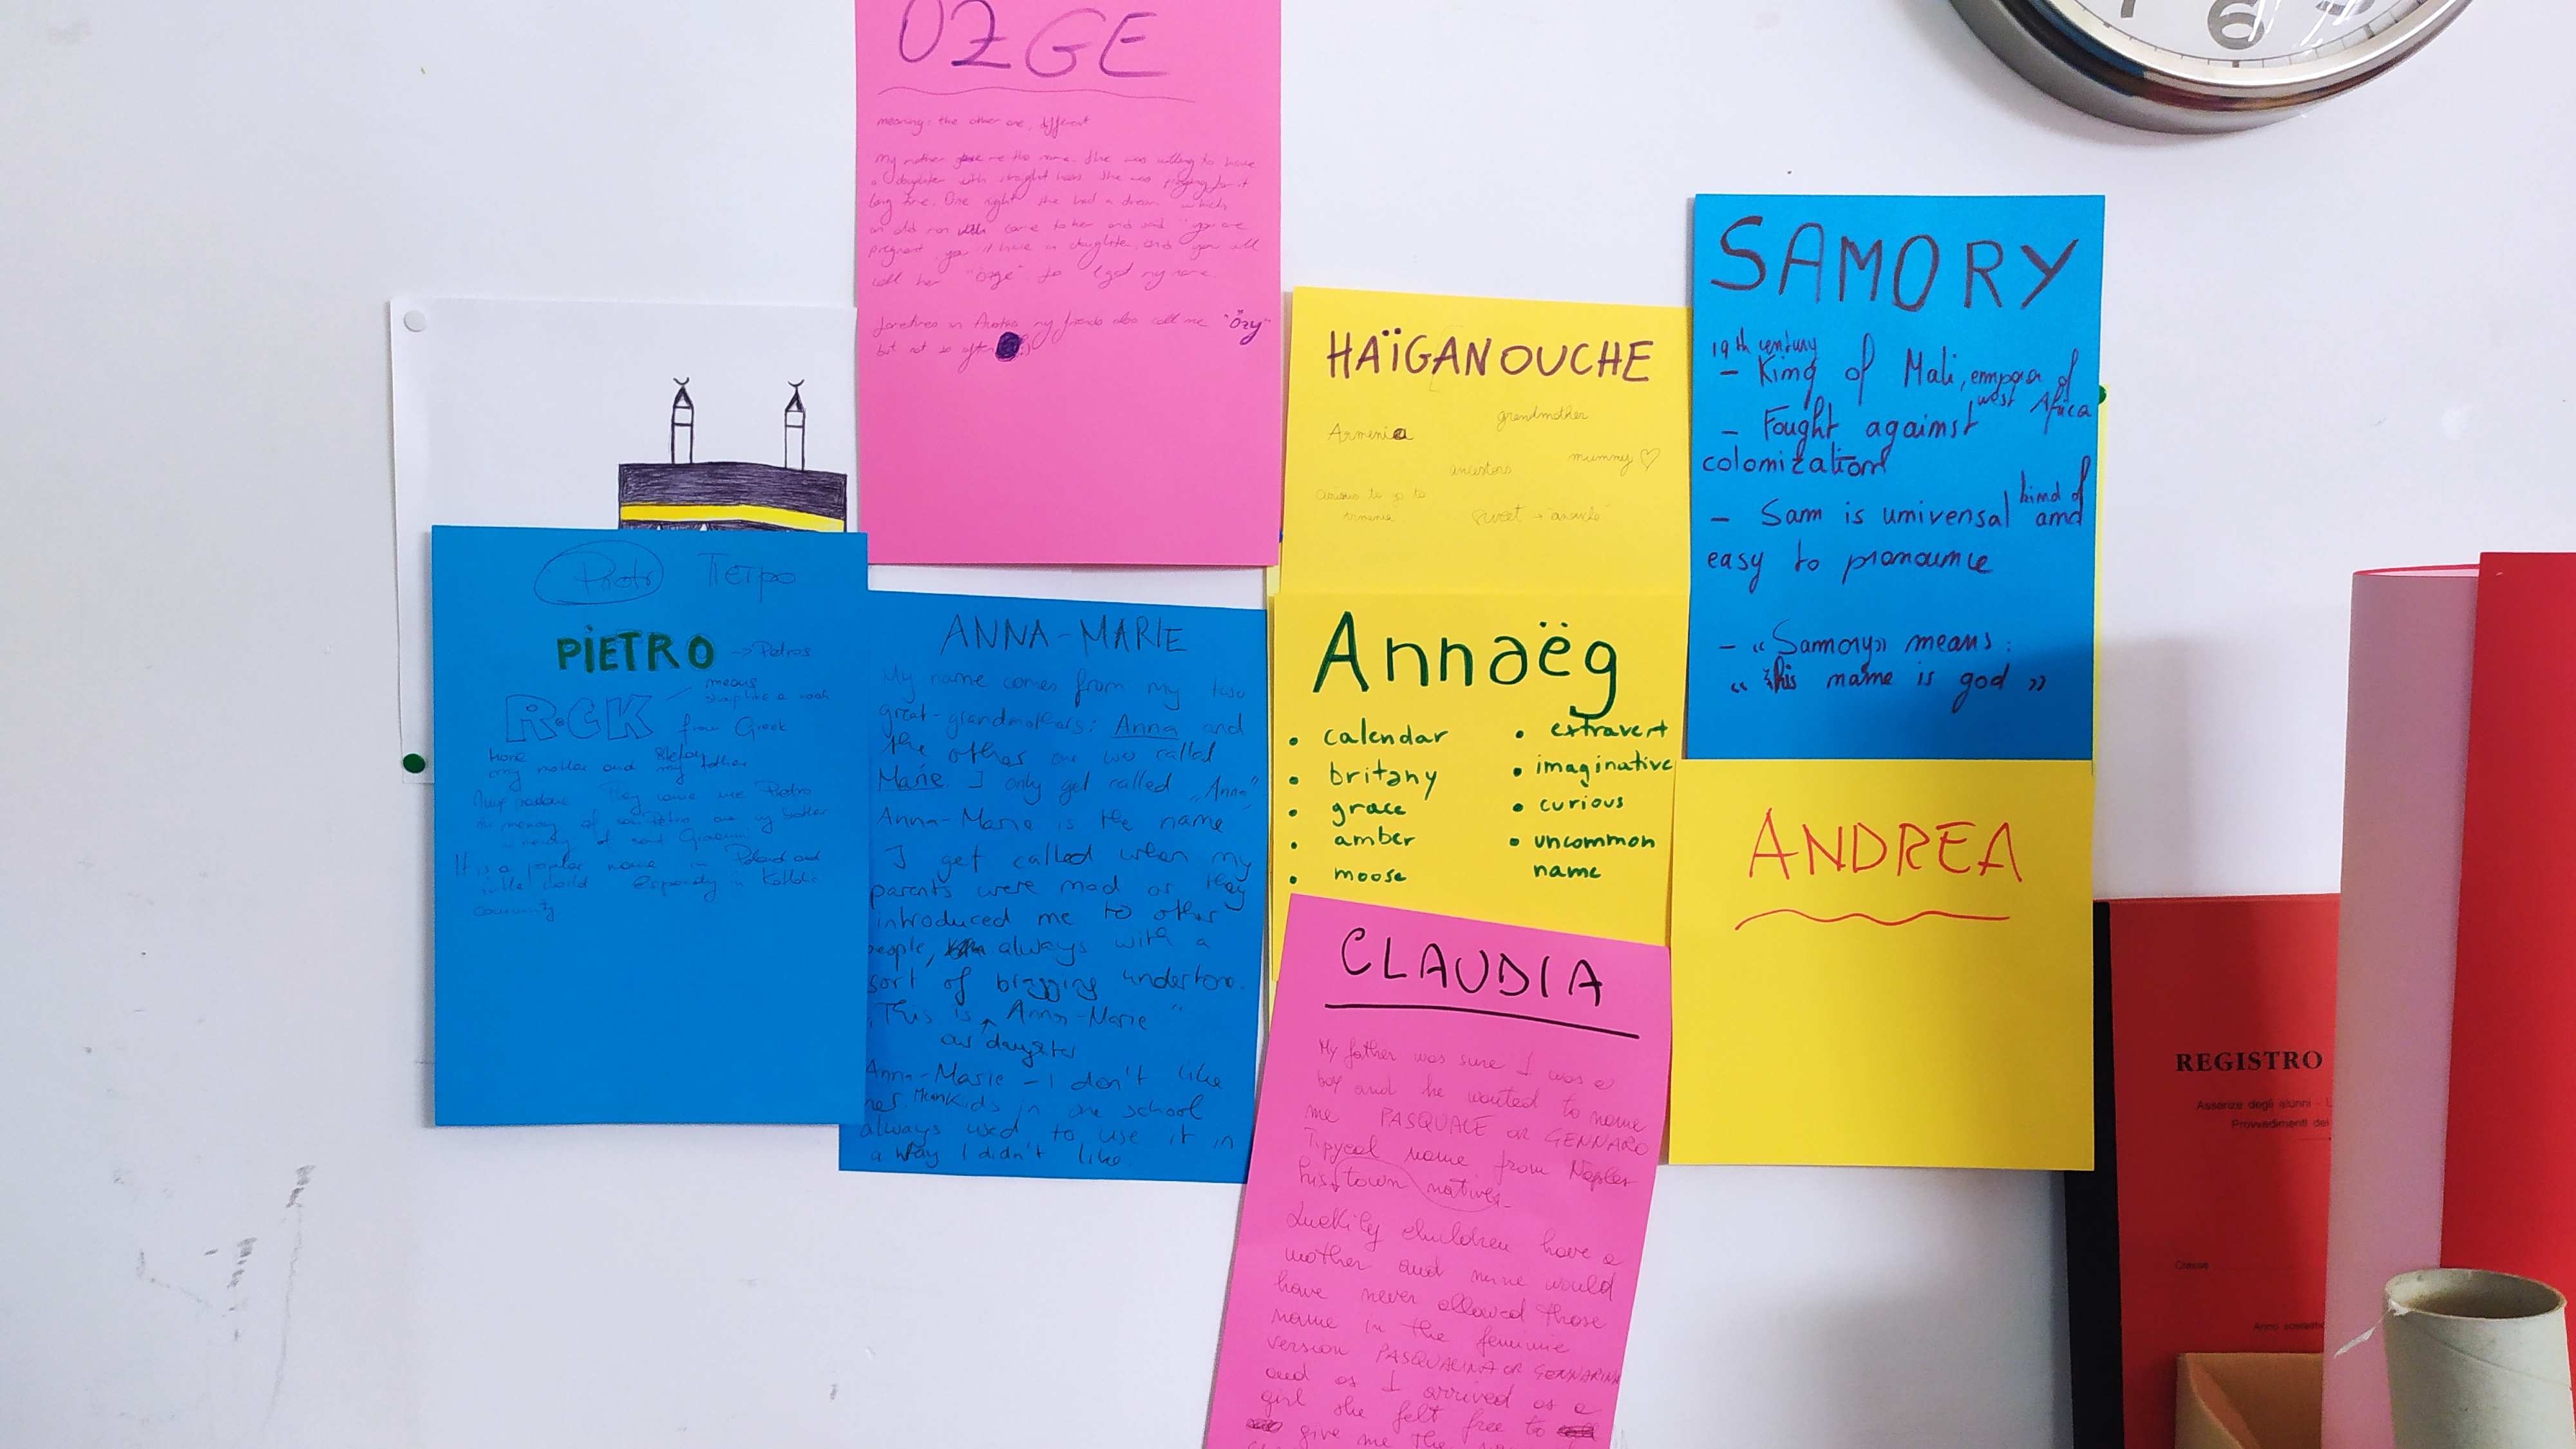 OZGE
meaning: the other one, different
My mother gave me the name. She was willing to have
a daughter with straight hair. She was praying for it
long time. One night she had a dream which
an old man came to her and said "you are
pregnant, you'll have a daughter, and you will
call her "özge" so I got my name.
Sometimes in Austria my friends also call me "Özy"
but not so often :)
HAÏGANOUCHE
grandmother
Armenia
mummy ♡
ancestors
to go to
Armenia
sweet →
SAMORY
19th century
- King of Mali, emperor of
west Africa
- Fought against
colonization
- Sam is universal kind of
and
easy to pronounce
- « Samory » means :
« his name is god »
Piotr Петро
PiETRO → Petros
ROCK means
like a rock
from Greek
my mother and my father
They name me Pietro
in memory of
memory of
It is a popular name in Poland and
in the world Especially in Katholic
community
ANNA-MARIE
My name comes from my two
great-grandmothers: Anna and
the other one we called
Marie. I only get called „Anna"
Anna-Marie is the name
I get called when my
parents were mad or they
introduced me to other
people, always with a
sort of bragging undertone.
„This is Anna-Marie"
our daughter
Anna-Marie - I don't like
her. Kids in school
always used to use it in
a way I didn't like.
Annaëg
• calendar
• britany
• grace
• amber
• moose
• extravert
• imaginative
• curious
• uncommon
name
ANDREA
CLAUDIA
My father was sure I was a
boy and he wanted to name
me PASQUALE OR GENNARO
Tipycal name from Naples
his town natives.
Luckily children have a
mother and mine would
have never allowed those
name in the feminine
version PASQUALINA OR GENNARINA
and as I arrived as a
girl she felt free to
give me the
REGISTRO
Assenze degli alunni - 
Provvedimenti del
Classe
Anno scolastic